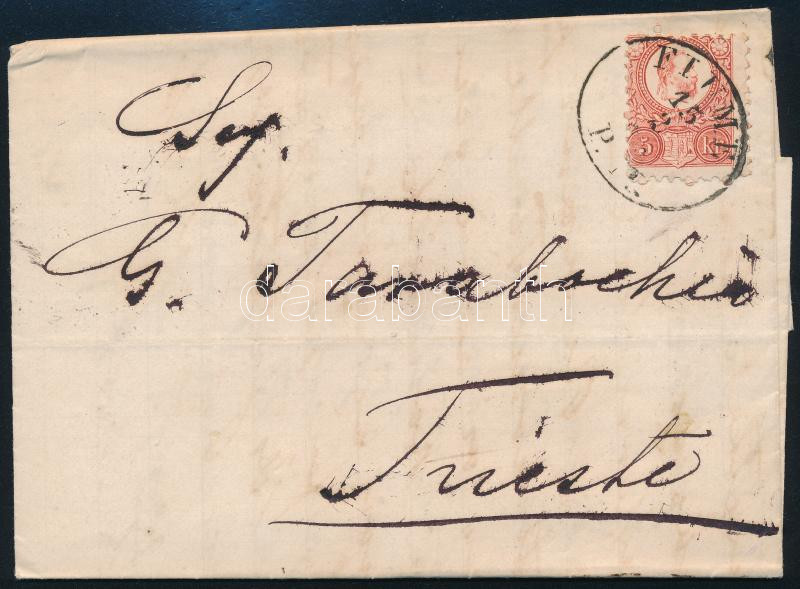 FIUME
5 Kr
Seg.
G. Tarabochia
darabanth
Trieste